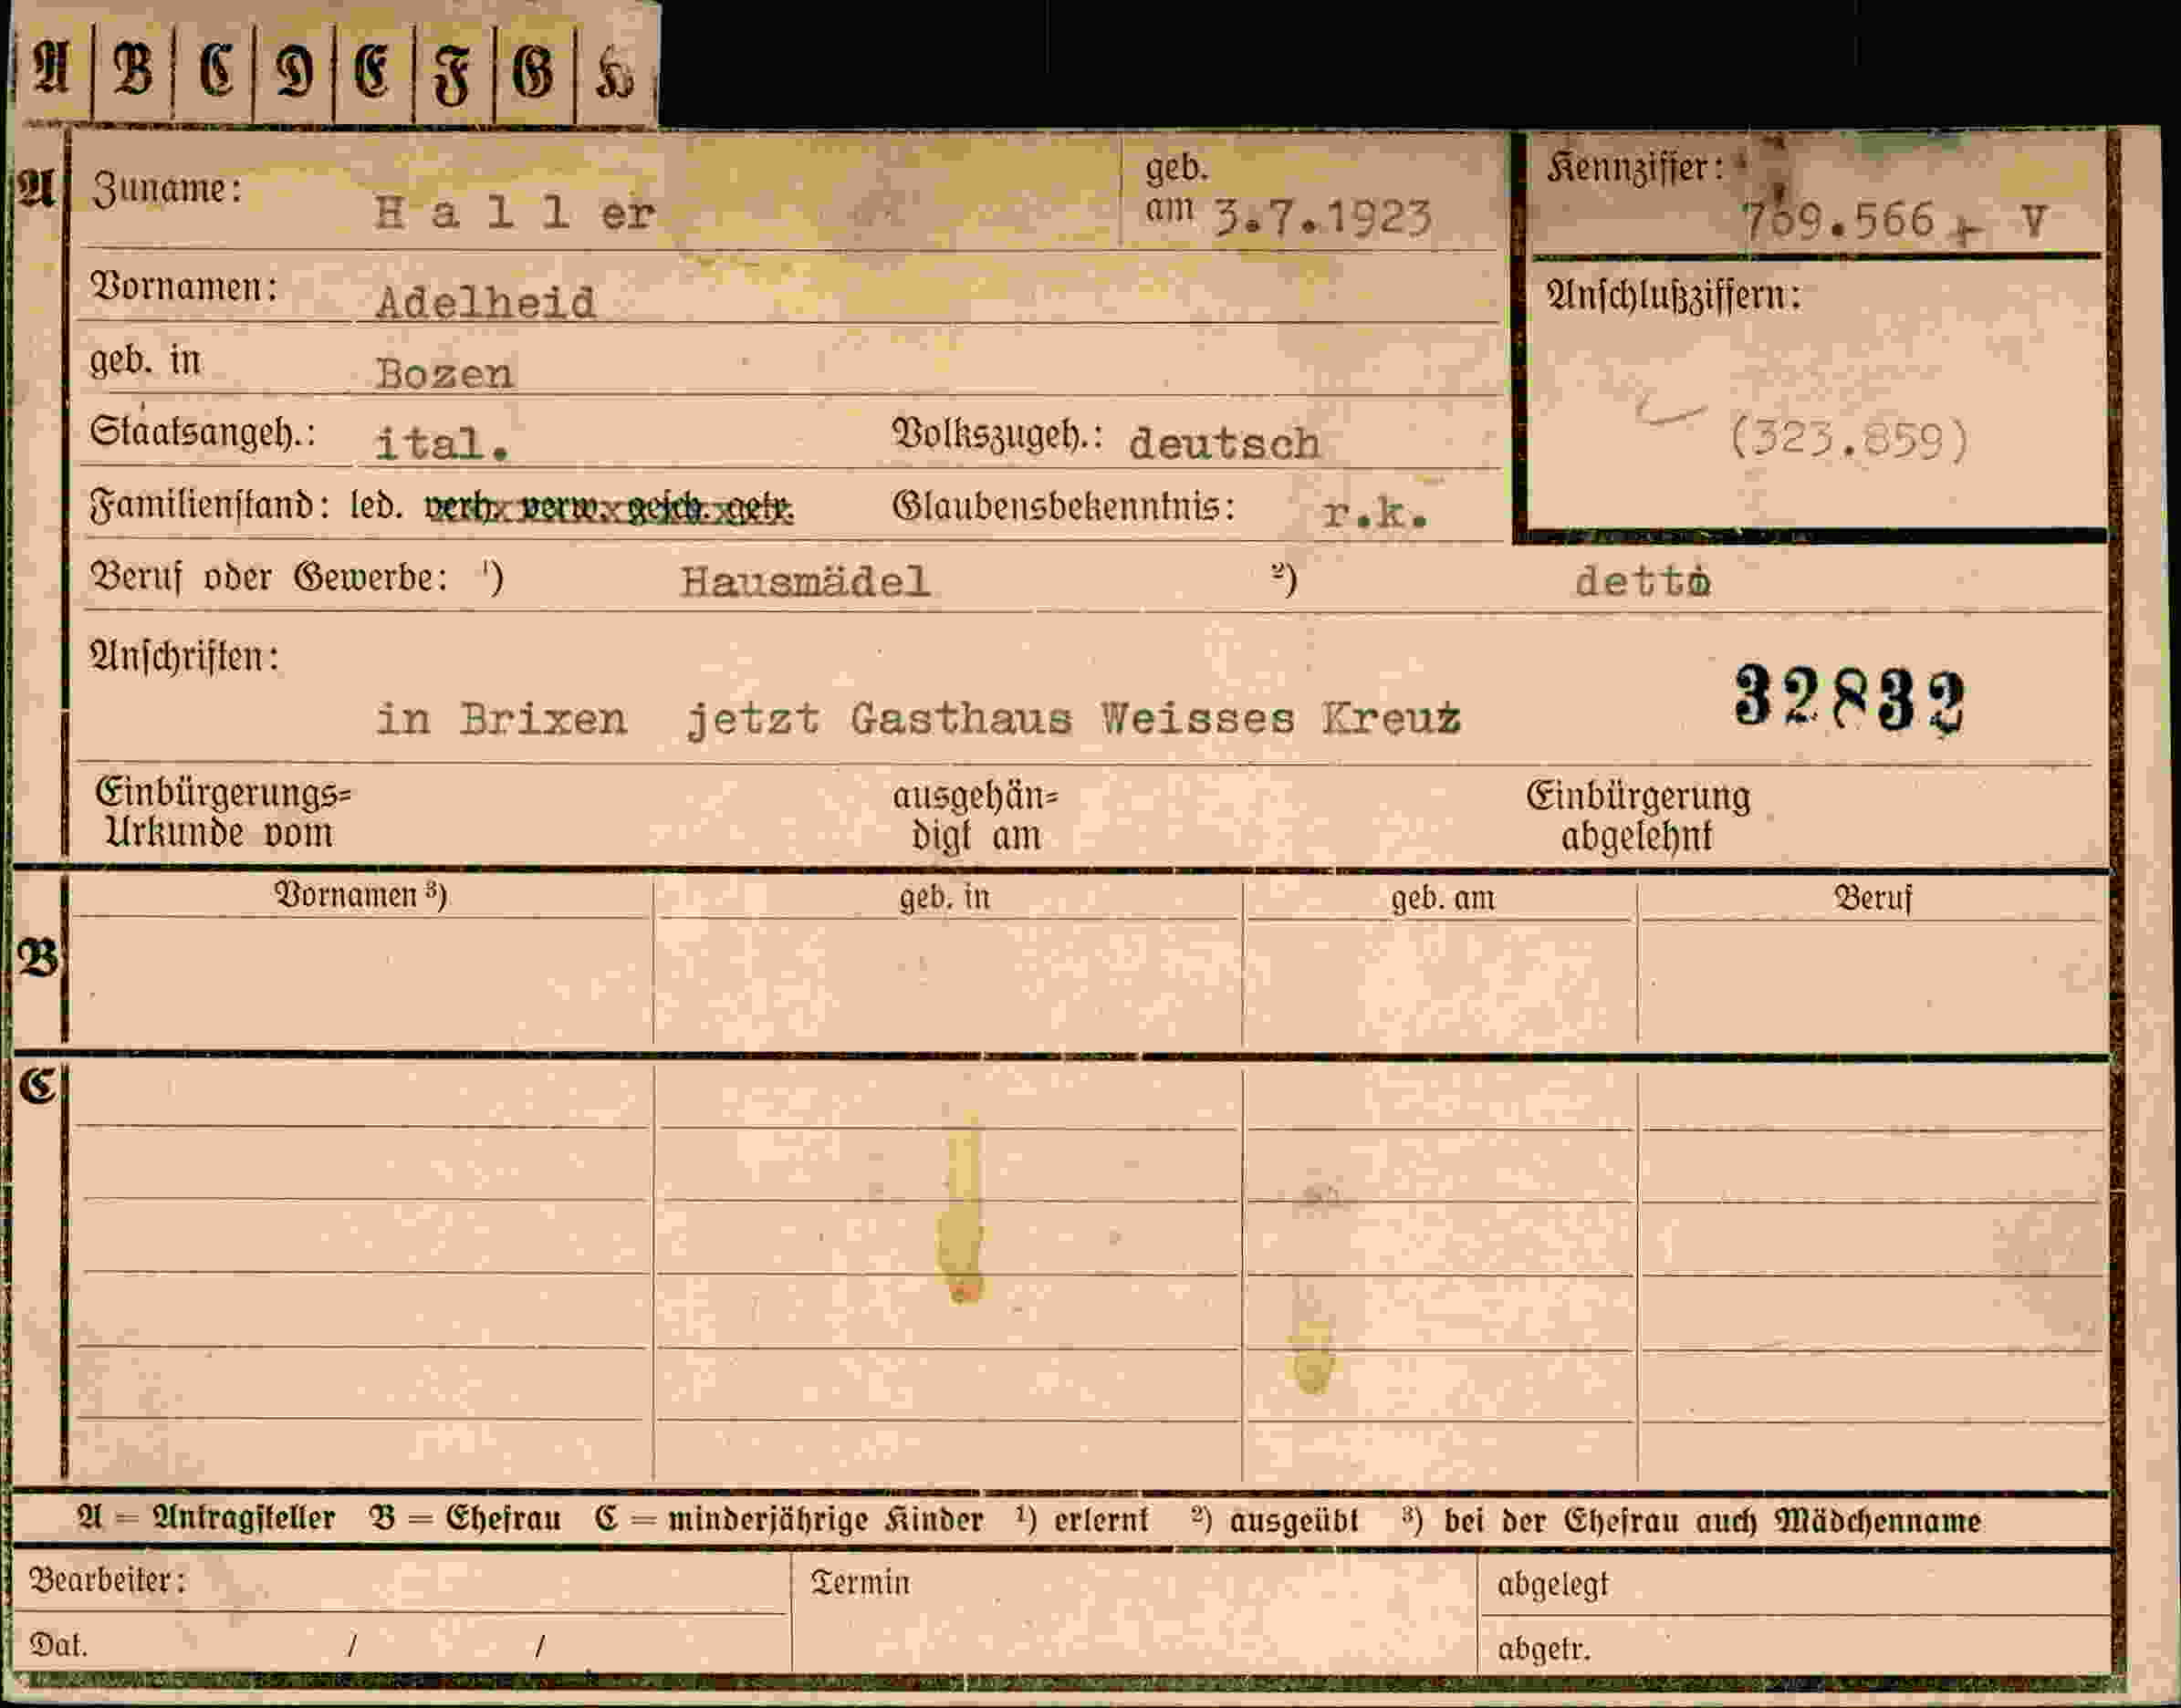 A B C D E F G H
A Zuname: H a l l er geb. am 3.7.1923 Kennziffer: 769.566 + V
Vornamen: Adelheid Anschlußziffern:
geb. in Bozen
Staatsangeh.: ital. Volkszugeh.: deutsch (323.859)
Familienstand: led. verh. verw. gesch. getr. Glaubensbekenntnis: r.k.
Beruf oder Gewerbe: ¹) Hausmädel ²) detto
Anschriften:
in Brixen jetzt Gasthaus Weisses Kreuz 32832
Einbürgerungs= ausgehän= Einbürgerung
Urkunde vom digt am abgelehnt
B Vornamen ³) geb. in geb. am Beruf
C
A = Antragsteller B = Ehefrau C = minderjährige Kinder ¹) erlernt ²) ausgeübt ³) bei der Ehefrau auch Mädchenname
Bearbeiter: Termin abgelegt
Dat. / / abgetr.